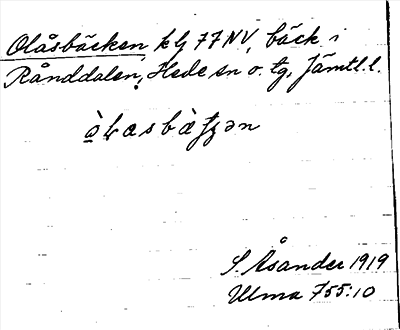 Olåsbäcken kbl 77 NV, bäck i
Rånddalen, Hede sn o. tg, Jämtl. l.
S. Åsander 1919
Ulma 755:10